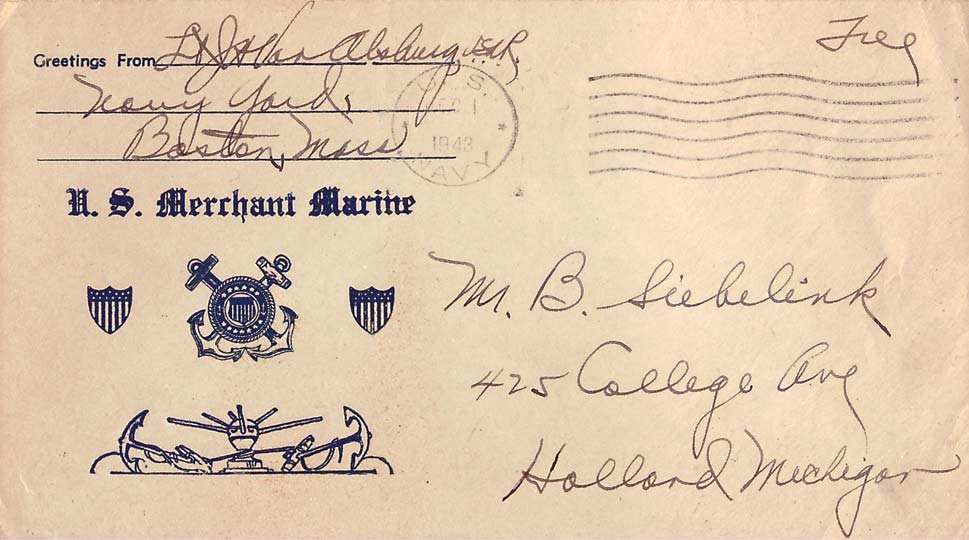 Free
Greetings From Lt J H Van Alsburg USNR
Navy Yard,
Boston, Mass
U. S.
1943
NAVY
U. S. Merchant Marine
Mr. B. Siebelink
425 College Ave
Holland Michigan